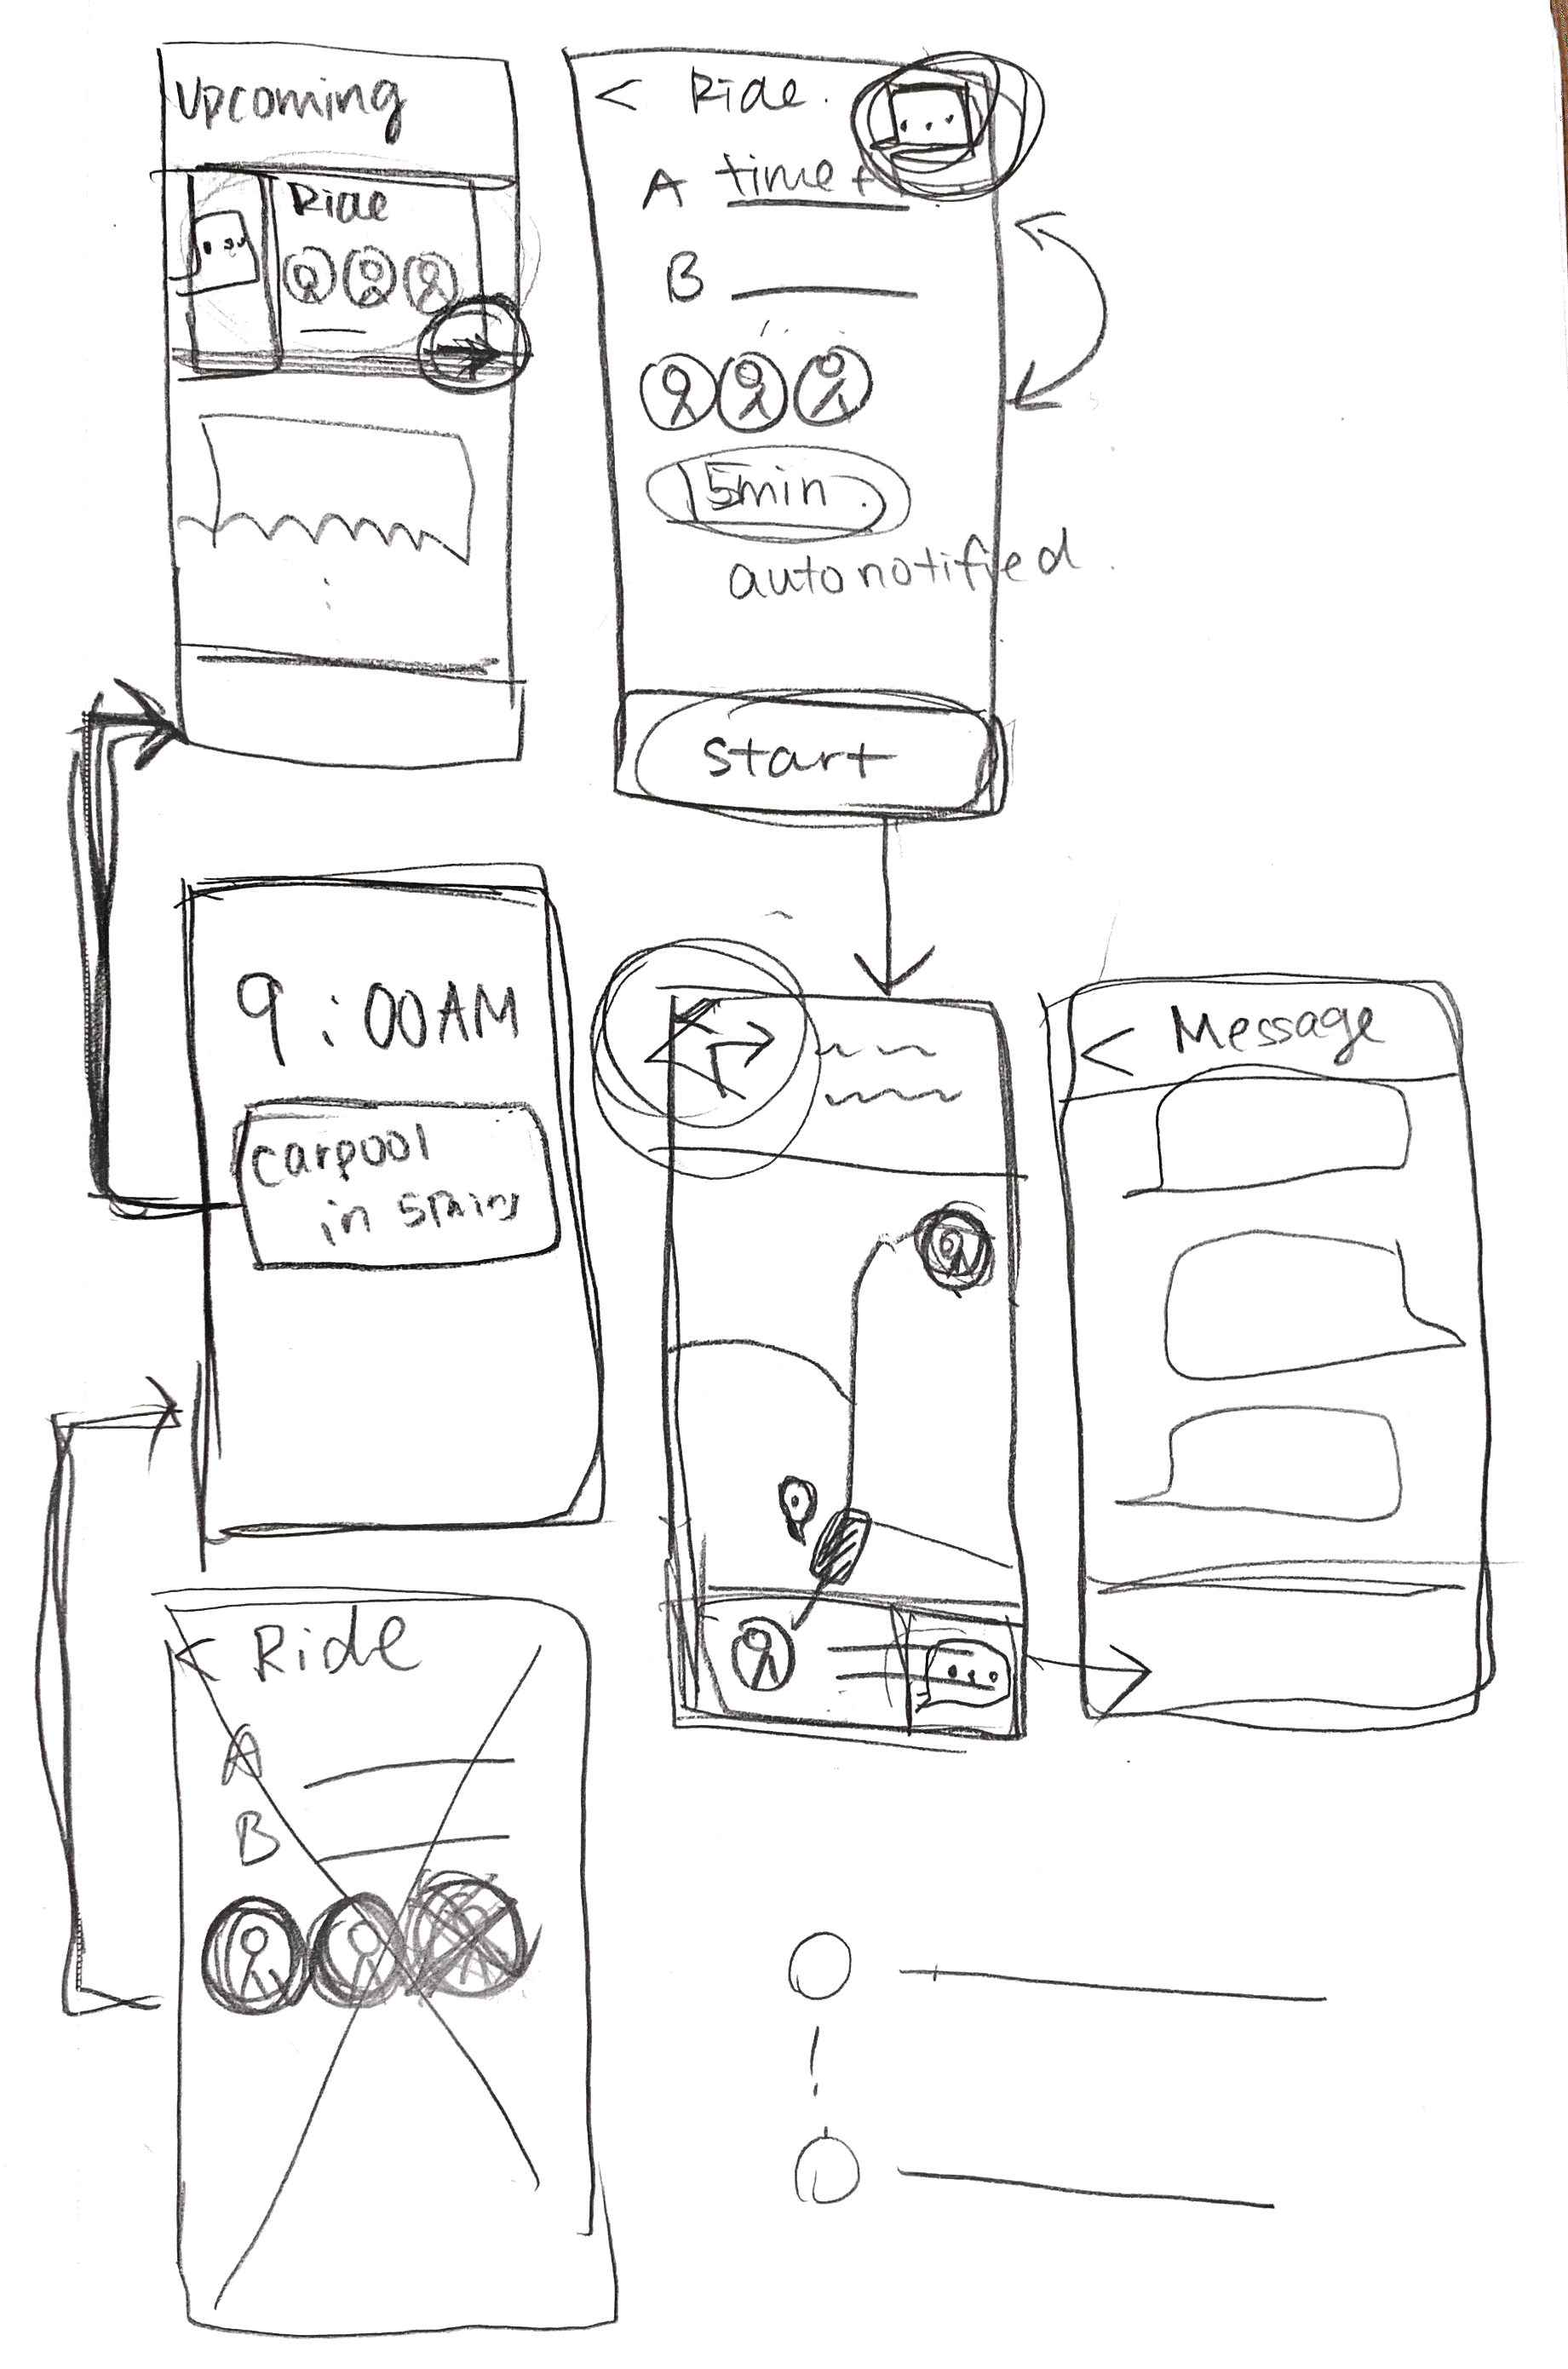 Upcoming
Ride
< Ride.
A time
B
15min
autonotified.
start
9:00AM
carpool
in 5mins
< Message
< Ride
A
B